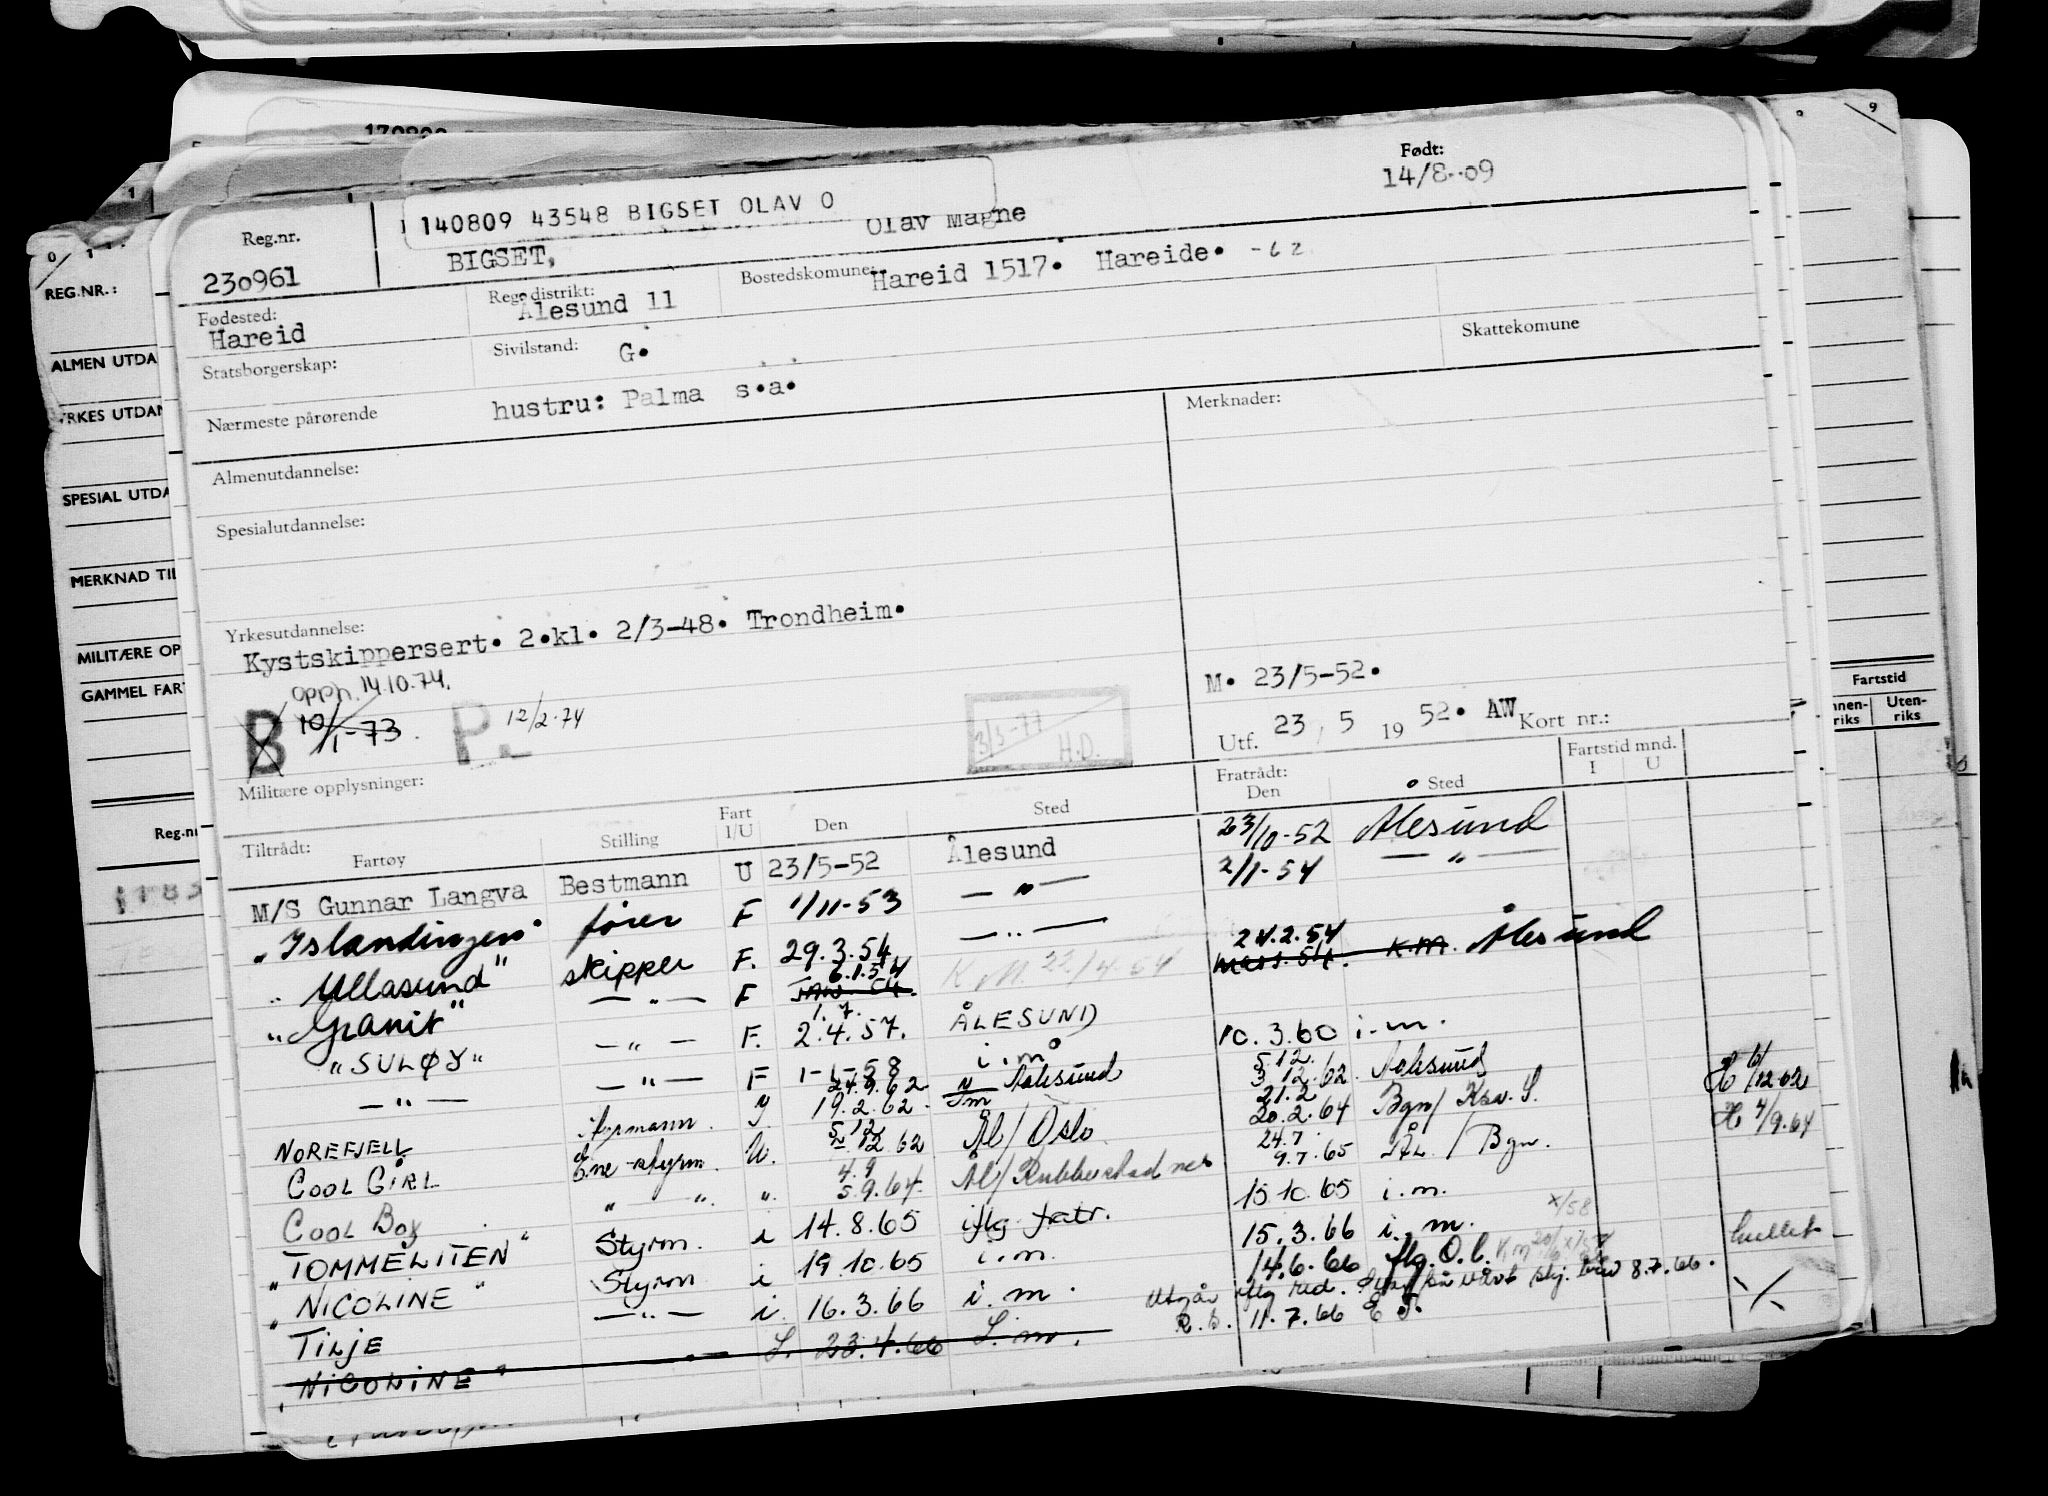 170809
9
0 1
1
Født:
14/8-09
140809 43548 BIGSET OLAV O
Reg.nr.
230961
BIGSET,
Olav Magne
Fødested:
Hareid
Reg.distrikt:
Ålesund 11
Bostedskomune:
Hareid 1517. Hareide. -62
Statsborgerskap:
Sivilstand:
G.
Skattekomune
Nærmeste pårørende
hustru: Palma s.a.
Merknader:
Almenutdannelse:
Spesialutdannelse:
Yrkesutdannelse:
Kystskippersert. 2.kl. 2/3-48. Trondheim.
opph. 14.10.74.
B 10/1-73.
P. 12/2-74
3/3-77 H.D.
M. 23/5-52.
Utf. 23, 5 19 52. AW Kort nr.:
Militære opplysninger:
Fratrådt:
Fartstid mnd.
Tiltrådt: Fartøy Stilling Fart I/U Den Sted Den Sted I U
M/S Gunnar Langva Bestmann U 23/5-52 Ålesund 23/10-52 Ålesund
"Islandingen" fører F 1/11-53 — " — 2/1-54 — " —
"Ullasund" skipper F. 29.3.54 — " —
"Granit" — " — F 6.1.54 K M 22/4-54 24.2.54 K.M. Ålesund
mars. 54.
"SULØY" — " — F. 1.7. 2.4.57. ÅLESUND 10.3.60 i.m.
— " — — " — F 1-1-58 i.m.
24.9.62 Aalesund 5.12. 3.12.62. Aalesund
NOREFJELL 19.2.62. 5/12.62
COOL GIRL Ene-styrm. U. 5.12 12 62 Ål/Oslo 21.2 20.2.64 Bgn/
COOL BOY " — ". ". 4.9 5.9.64. Ål/Rubbestadnes 24.7. 9.7.65 Ål./Bgn. 4/9.64
"TOMMELITEN" Styrm. i 14.8.65 iflg. fratr. 15.10.65 i.m.
"NICOLINE" Styrm i 19.10.65 i.m. 15.3.66 i.m. X/58
TILJE — " — i. 16.3.66 i.m. 14.6.66 flg. O.l. hullet
"NICOLINE" — " — 23.4.66
Utgår iflg red. skj. 8.7.66.
11.7.66
REG.NR.:
ALMEN UTDA
YRKES UTDAN
SPESIAL UTDA
MERKNAD TIL
MILITÆRE OP
GAMMEL FART
Reg.nr
Fartstid
nnen-riks
Uten-riks